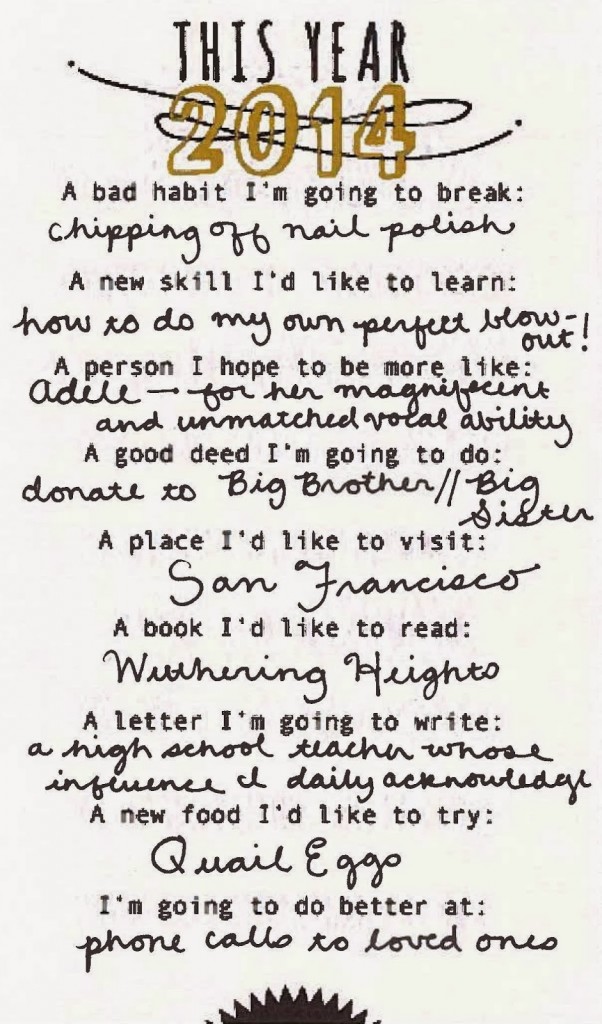 THIS YEAR
2014
A bad habit I'm going to break:
chipping off nail polish
A new skill I'd like to learn:
how to do my own perfect blow-
out!
A person I hope to be more like:
Adele — for her magnificent
and unmatched vocal ability
A good deed I'm going to do:
donate to Big Brother // Big
Sister
A place I'd like to visit:
San Francisco
A book I'd like to read:
Wuthering Heights
A letter I'm going to write:
a high school teacher whose
influence I daily acknowledge
A new food I'd like to try:
Quail Eggs
I'm going to do better at:
phone calls to loved ones